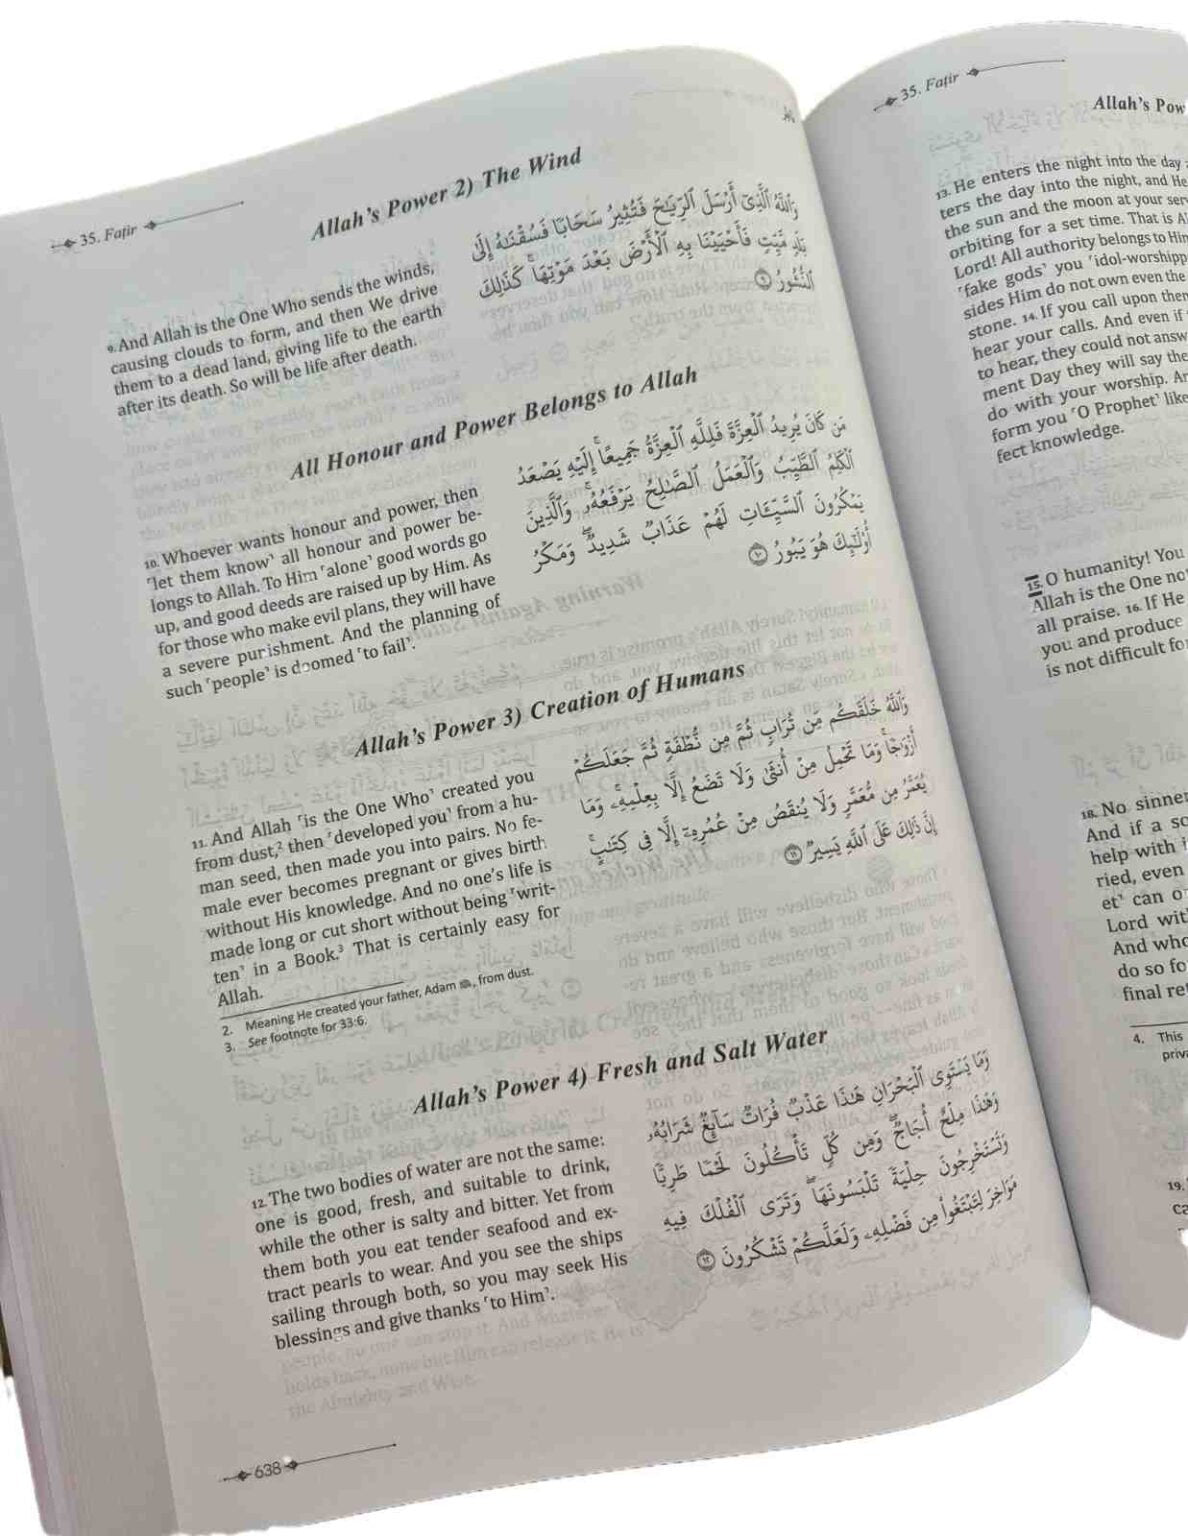 35. Faṭir
Allah's Power 2) The Wind
9. And Allah is the One Who sends the winds,
causing clouds to form, and then We drive
them to a dead land, giving life to the earth
after its death. So will be life after death.
وَٱللَّهُ ٱلَّذِىٓ أَرْسَلَ ٱلرِّيَـٰحَ فَتُثِيرُ سَحَابًا فَسُقْنَـٰهُ إِلَىٰ
بَلَدٍ مَّيِّتٍ فَأَحْيَيْنَا بِهِ ٱلْأَرْضَ بَعْدَ مَوْتِهَا ۚ كَذَٰلِكَ
ٱلنُّشُورُ ٩
All Honour and Power Belongs to Allah
10. Whoever wants honour and power, then
˹let them know˺ all honour and power be-
longs to Allah. To Him ˹alone˺ good words go
up, and good deeds are raised up by Him. As
for those who make evil plans, they will have
a severe punishment. And the planning of
such ˹people˺ is doomed ˹to fail˺.
مَن كَانَ يُرِيدُ ٱلْعِزَّةَ فَلِلَّهِ ٱلْعِزَّةُ جَمِيعًا ۚ إِلَيْهِ يَصْعَدُ
ٱلْكَلِمُ ٱلطَّيِّبُ وَٱلْعَمَلُ ٱلصَّـٰلِحُ يَرْفَعُهُۥ ۚ وَٱلَّذِينَ
يَمْكُرُونَ ٱلسَّيِّـَٔاتِ لَهُمْ عَذَابٌ شَدِيدٌ ۖ وَمَكْرُ
أُو۟لَـٰٓئِكَ هُوَ يَبُورُ ١٠
Allah's Power 3) Creation of Humans
11. And Allah ˹is the One Who˺ created you
from dust,² then ˹developed you˺ from a hu-
man seed, then made you into pairs. No fe-
male ever becomes pregnant or gives birth
without His knowledge. And no one's life is
made long or cut short without being ˹writ-
ten˺ in a Book.³ That is certainly easy for
Allah.
وَٱللَّهُ خَلَقَكُم مِّن تُرَابٍ ثُمَّ مِن نُّطْفَةٍ ثُمَّ جَعَلَكُمْ
أَزْوَٰجًا ۚ وَمَا تَحْمِلُ مِنْ أُنثَىٰ وَلَا تَضَعُ إِلَّا بِعِلْمِهِۦ ۚ وَمَا
يُعَمَّرُ مِن مُّعَمَّرٍ وَلَا يُنقَصُ مِنْ عُمُرِهِۦٓ إِلَّا فِى كِتَـٰبٍ ۚ
إِنَّ ذَٰلِكَ عَلَى ٱللَّهِ يَسِيرٌ ١١
2. Meaning He created your father, Adam, from dust.
3. See footnote for 33:6.
Allah's Power 4) Fresh and Salt Water
12. The two bodies of water are not the same:
one is good, fresh, and suitable to drink,
while the other is salty and bitter. Yet from
them both you eat tender seafood and ex-
tract pearls to wear. And you see the ships
sailing through both, so you may seek His
blessings and give thanks ˹to Him˺.
وَمَا يَسْتَوِى ٱلْبَحْرَانِ هَـٰذَا عَذْبٌ فُرَاتٌ سَآئِغٌ شَرَابُهُۥ
وَهَـٰذَا مِلْحٌ أُجَاجٌ ۖ وَمِن كُلٍّ تَأْكُلُونَ لَحْمًا طَرِيًّا
وَتَسْتَخْرِجُونَ حِلْيَةً تَلْبَسُونَهَا ۖ وَتَرَى ٱلْفُلْكَ فِيهِ
مَوَاخِرَ لِتَبْتَغُوا۟ مِن فَضْلِهِۦ وَلَعَلَّكُمْ تَشْكُرُونَ ١٢
638
35. Faṭir
Allah's Pow
13. He enters the night into the day
ters the day into the night, and He
the sun and the moon at your ser
orbiting for a set time. That is Al
Lord! All authority belongs to Him
˹fake gods˺ you ˹idol-worshipp
sides Him do not own even the
stone. 14. If you call upon them
hear your calls. And even if
to hear, they could not answ
ment Day they will say the
do with your worship. An
form you ˹O Prophet˺ like
fect knowledge.
15. O humanity! You
Allah is the One no
all praise. 16. If He
you and produce
is not difficult fo
18. No sinner
And if a so
help with i
ried, even
et˺ can o
Lord wit
And who
do so fo
final ret
4. This
priva
19.
ca